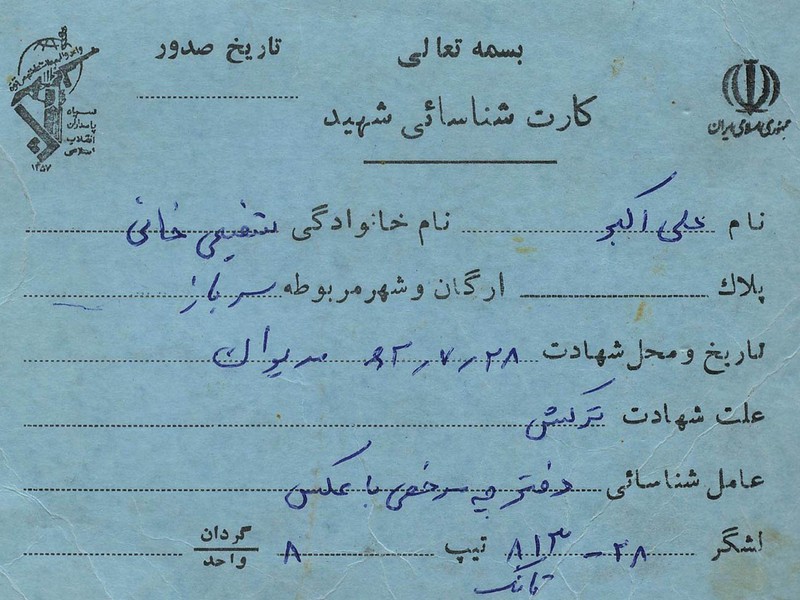 بسمه تعالی
تاریخ صدور
کارت شناسائی شهید
جمهوری اسلامی ایران
سپاه
پاسداران
انقلاب
اسلامی
۱۳۵۷
نام علی اکبر نام خانوادگی شفیعی خانی
پلاک ارگان و شهر مربوطه سرباز
تاریخ و محل شهادت ۶۲/۷/۲۸ مریوان
علت شهادت ترکش
عامل شناسائی دفترچه مرخصی با عکس
لشگر ۲۸ - ۸۱۳ تیپ ۸ گردان
واحد
تانک